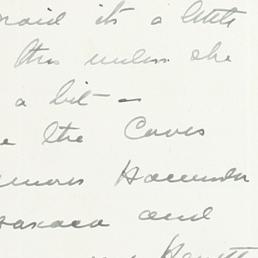 raid it's a little
this unless she
a bit —
e the Caves
Hacienda
axaca and